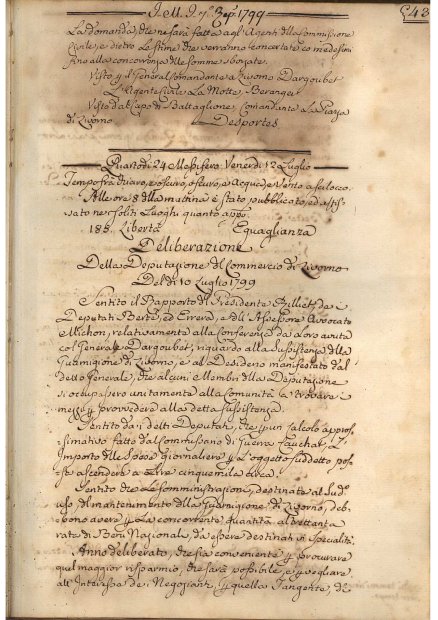 1799
543
La domanda, che ne sarà fatta agli Agenti della Commissione
Civile, e dietro le stime che verranno concertate co medesimi
fino alla concorrenza delle somme sborsate.
Visto il General Comandante a Livorno Dargoubet
L'Agente Civile La Motte Beranger
Visto dal Capo di Battaglione, Comandante la Piazza
di Livorno Desportes
Quartodì 24 Messifero Venerdì 12 Luglio
Tempo fra chiaro, e oscuro, e Acque, e Vento a Scilocco.
Alle ore 8 della mattina è stato pubblicato, ed affis-
sato ne soliti Luoghi quanto app.
185. Libertà Eguaglianza
Deliberazione
Della Deputazione del Commercio di Livorno
Del dì 10 Luglio 1799
Sentito il Rapporto del Presidente de i
Deputati Berte, ed Errera, e dell'Assessore Avvocato
Michon, relativamente alla Conferenza da loro avuta
col Generale Dargoubet, riguardo alla sussistenza della
Guarnigione di Livorno, e al Desiderio manifestato dal
detto Generale, che alcuni Membri della Deputazione
si occupassero unitamente alla Comunità a trovare i
mezzi p provvedere alla detta sussistenza.
Sentito da i detti Deputati, che p un calcolo appros-
simativo fatto dal Commissario di Guerra Fauchar, L'
Importo delle Spese giornaliere p L'oggetto suddetto pos-
sa ascendere a Lire cinquemila circa.
Sentito che Le somministrazioni, destinate al Sud.
uso di mantenimento della Guarnigione di Livorno, deb-
bono avere p La concorrente quantità altrettanta
rata di Beni Nazionali, da essere destinati in Specialità.
Anno deliberato, che sia conveniente p procurare
quel maggior risparmio, che sarà possibile, e p vegliare
all'Interesse de i Negozianti, p quella Tangente, che